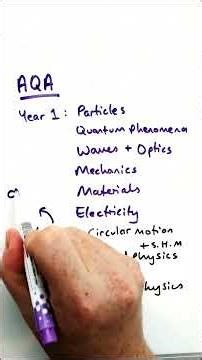 AQA
Year 1: Particles
Quantum Phenomena
Waves + Optics
Mechanics
Materials
Electricity
Circular Motion
+ S.H.M
physics
physics